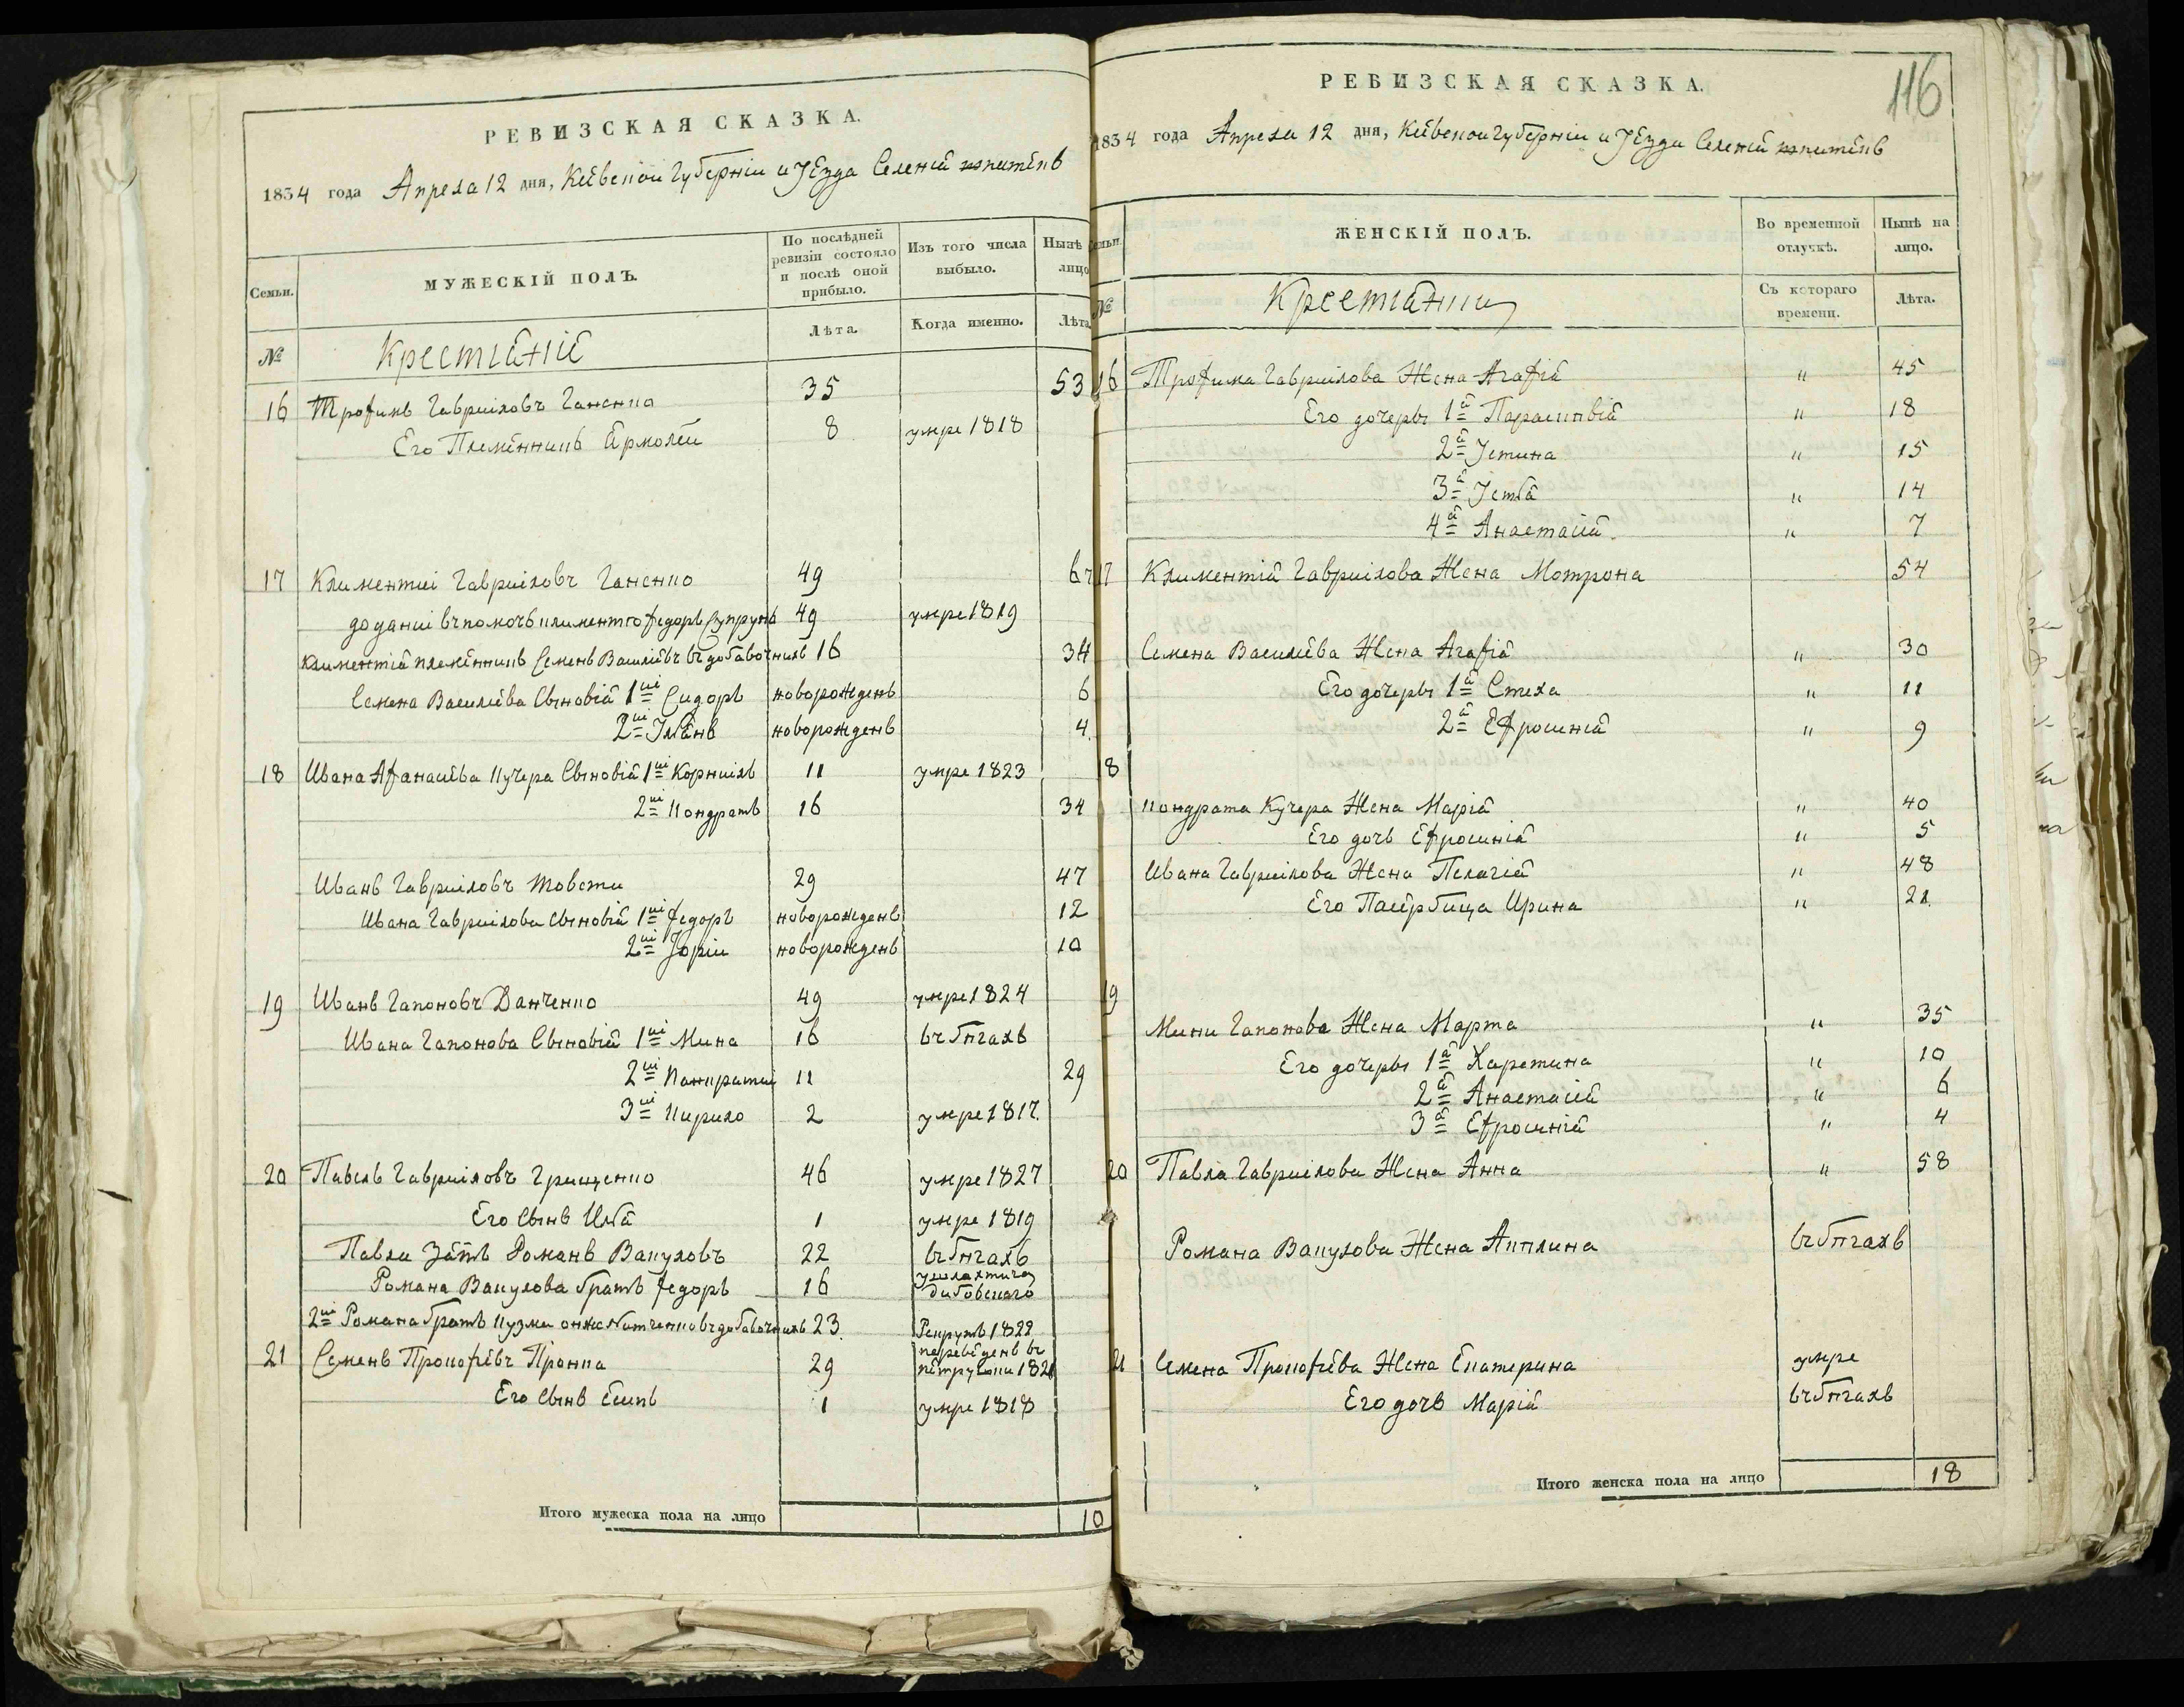 РЕВИЗСКАЯ СКАЗКА.
1834 года Апреля 12 дня, Кіевской Губерніи и Уезда Селенія
Семьи.
МУЖЕСКІЙ ПОЛЪ.
По послѣдней ревизіи состояло и послѣ оной прибыло.
Изъ того числа выбыло.
Нынѣ лицо
№
Крестіаніе
Лѣта.
Когда именно.
Лѣта
16 Трофимъ Гавриловъ Ганенко 35 53
Его Племенникъ Ермолей 8 умре 1818
17 Климентии Гавриловъ Ганенко 49 67
доданий въ помочь Климентію Федоръ Супрунъ 49 умре 1819
Климентія племенникъ Семенъ Василіевъ въ добавочнихъ 16 34
Семена Василіева Сыновія 1й Сидоръ новорожденъ 6
2й новорожденъ 4
18 Ивана Афанасіева Кучера Сыновія 1й Корнилъ 11 умре 1823
2й Кондратъ 16 34
Иванъ Гавриловъ Товсти 29 47
Ивана Гаврилова Сыновія 1й Федоръ новорожденъ 12
2й Юрій новорожденъ 10
19 Иванъ Гапоновъ Данченко 49 умре 1824
Ивана Гапонова Сыновія 1й Мина 16 въ бѣгахъ
2й Панкратий 11 29
3й Кирило 2 умре 1817
20 Павелъ Гавриловъ Грищенко 46 умре 1827
Его Сынъ Илія 1 умре 1819
Павла Зять Романъ Вакуловъ 22 въ бѣгахъ
Романа Вакулова братъ Федоръ 16 у шляхтича
2й Романа братъ Кузма въ добавочнихъ 23 Рекрутъ 1822
21 Семенъ Прокофіевъ Пронка 29 переведенъ въ
Его Сынъ Есипъ 1 умре 1818
Итого мужеска пола на лицо 10
116
РЕВИЗСКАЯ СКАЗКА.
1834 года Апреля 12 дня, Кіевской Губерніи и Уезда Селенія
Семьи.
ЖЕНСКІЙ ПОЛЪ.
Во временной отлучкѣ.
Нынѣ на лицо.
№
Крестіанки
Съ котораго времени.
Лѣта.
16 Трофима Гаврилова Жена Агафія " 45
Его дочеры 1я Параскивія " 18
2я Устина " 15
3я " 14
4я Анастасія " 7
17 Климентія Гаврилова Жена Мотрона 54
Семена Василіева Жена Агафія " 30
Его дочеры 1я Стеха " 11
2я Ефросинія " 9
8
Кондрата Кучера Жена Марія " 40
Его дочь Ефросинія " 5
Ивана Гаврилова Жена Пелагія " 48
Его Пасербица Ирина " 21
19
Мини Гапонова Жена Марта " 35
Его дочеры 1я Харетина " 10
2я Анастасія " 6
3я Ефросинія " 4
20 Павла Гаврилова Жена Анна " 58
Романа Вакулова Жена Акилина въ бѣгахъ
21 Семена Прокофіева Жена Екатерина умре
Его дочь Марія въ бѣгахъ
Итого женска пола на лицо 18